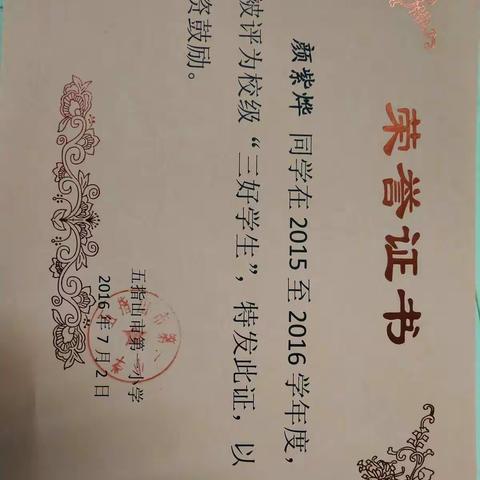 荣誉证书
颜紫烨 同学在 2015 至 2016 学年度,
被评为校级“三好学生”,特发此证,以
资鼓励。
五指山市第一小学
2016 年 7 月 2 日